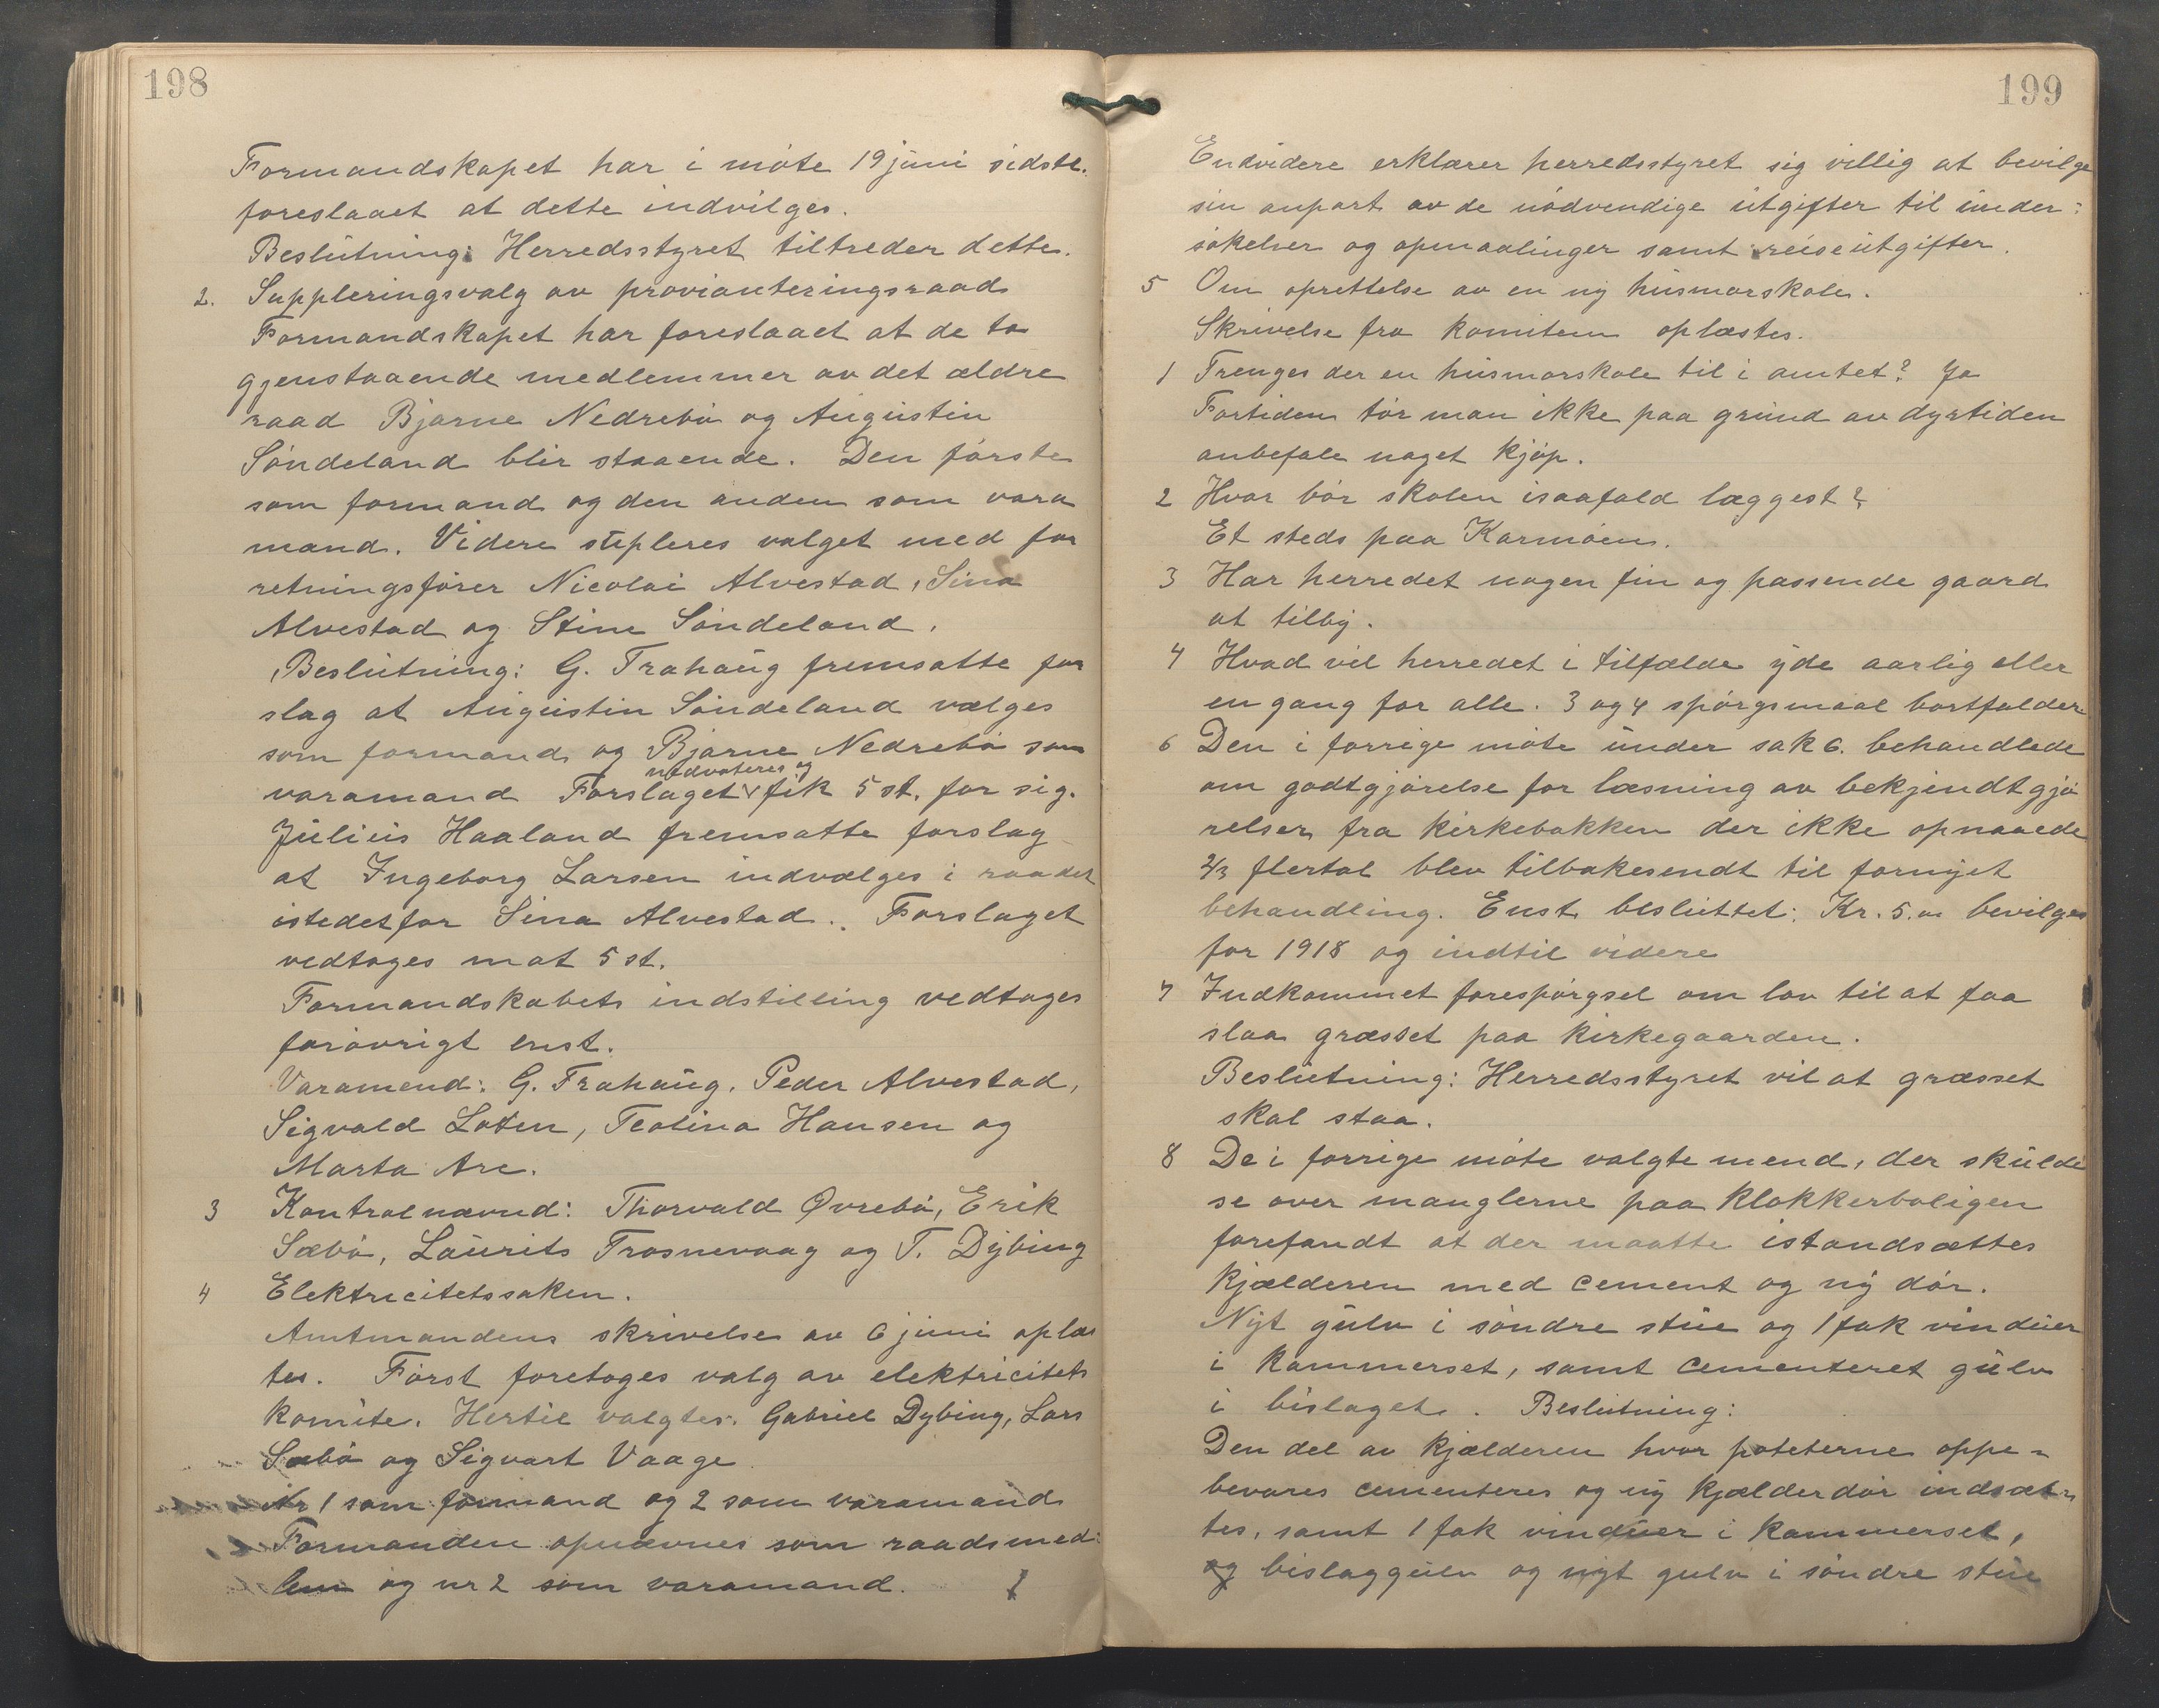 198
Formandskapet har i møte 19 juni sidstl.
foreslaaet at dette indvilges.
Beslutning: Herredsstyret tiltreder dette.
2. Suppleringsvalg av provianteringsraad
Formandskapet har foreslaaet at de to
gjenstaaende medlemmer av det ældre
raad Bjarne Nedrebø og Augustin
Søndeland blir staaende. Den første
som formand og den anden som vara
mand. Videre supleres valget med for
retningsfører Nicolai Alvestad, Sina
Alvestad og Stine Søndeland.
Beslutning: G. Trahaug fremsatte for
slag at Augustin Søndeland vælges
som formand og Bjarne Nedrebø som
nedvoteres og
varamand Forslaget v fik 5 st. for sig.
Julius Haaland fremsatte forslag
at Ingeborg Larsen indvælges i raadet
istedetfor Sina Alvestad. Forslaget
vedtoges mot 5 st.
Formandskabets indstilling vedtoges
forøvrigt enst.
Varamend: G. Trahaug, Peder Alvestad,
Sigvald Loten, Teolina Hansen og
Marta Are.
3 Kontrolnævnd: Thorvald Øvrebø, Erik
Sæbø, Laurits Trosnevaag og T. Dybing
4 Elektricitetssaken.
Amtmandens skrivelse av 6 juni oplæs
tes. Først foretoges valg av elektricitets
komite. Hertil valgtes: Gabriel Dybing, Lars
Sæbø og Sigvart Vaage
Nr 1 som formand og 2 som varamand
Formanden opnævnes som raadsmed:
lem og nr 2 som varamand.
199
Endvidere erklærer herredsstyret sig villig at bevilge
sin anpart av de nødvendige utgifter til under:
søkelser og opmaalinger samt reiseutgifter.
5 Om oprettelse av en ny husmorskole.
Skrivelse fra komiteen oplæstes.
1 Trenges der en husmorskole til i amtet? Ja
Fortiden tør man ikke paa grund av dyrtiden
anbefale noget kjøp.
2 Hvor bør skolen isaafald læggest?
Et steds paa Karmøen.
3 Har herredet nogen fin og passende gaard
at tilby.
4 Hvad vil herredet i tilfælde yde aarlig eller
en gang for alle. 3 og 4 spørgsmaal bortfalder
6 Den i forrige møte under sak 6. behandlede
om godtgjørelse for læsning av bekjendtgjø
relser fra kirkebakken der ikke opnaaede
2/3 flertal blev tilbakesendt til fornyet
behandling. Enst. besluttet: Kr. 5.00 bevilges
for 1918 og indtil videre
7 Indkommet forespørgsel om lov til at faa
slaa græsset paa kirkegaarden.
Beslutning: Herredsstyret vil at græsset
skal staa.
8 De i forrige møte valgte mend, der skulde
se over manglerne paa klokkerboligen
forefandt at der maatte istandsættes
kjælderen med cement og ny dør.
Nyt gulv i søndre stue og 1 fak vinduer
i kammerset, samt cementeret gulv
i bislaget. Beslutning:
Den del av kjælderen hvor poteterne oppe=
bevares cementeres og ny kjælderdør indsæt=
tes, samt 1 fak vinduer i kammerset,
og bislaggulv og nyt gulv i søndre stue